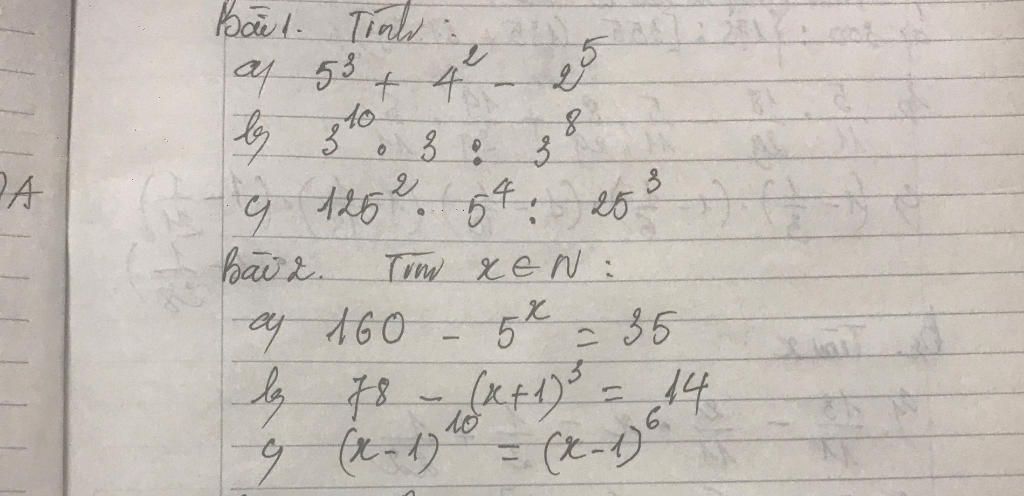 Bài 1. Tính :
a) 5³ + 4² - 2⁵
b) 3¹⁰ . 3 : 3⁸
c) 125² . 5⁴ : 25³
Bài 2. Tìm x ∈ N :
a) 160 - 5ˣ = 35
b) 78 - (x+1)³ = 14
c) (x-1)¹⁰ = (x-1)⁶
A